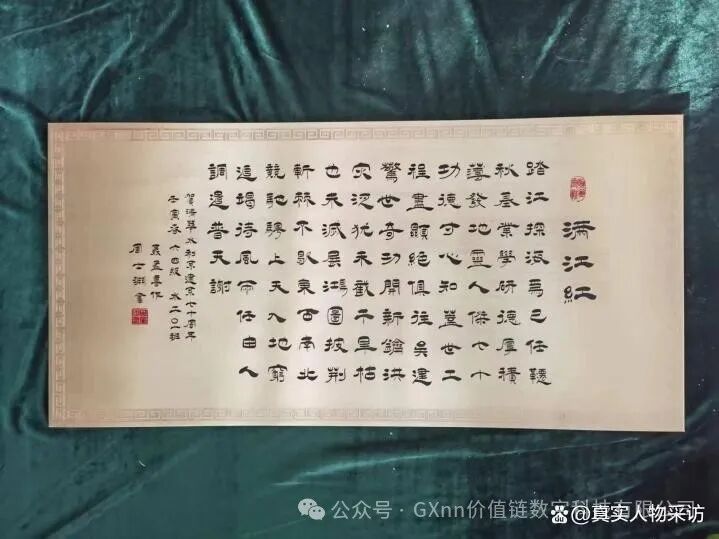 满江红
踏江探海為己任
秋基業學研德厚積
薄發地靈人傑七十
功德寸心知蓋世工
程盡顯絕俱往吳建
驚世奇功開新鑰洪
灾泛犹未截千里枯
也未滅展鴻圖披荆
斬棘不歇東西南北
競馳騁上天入地窮
追揭待風任由人
調遣普天謝
賀清華水利系建系七十周年
壬寅春 六四級 水二〇一班
孟 作
周士 書
公众号 · GXnn价值链数字科技有限公司
真实人物采访